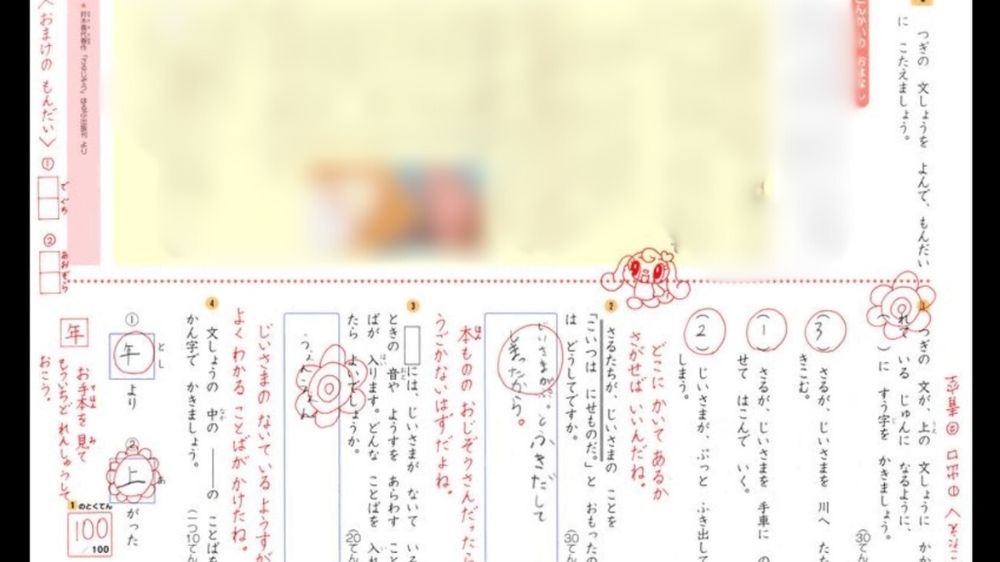 つぎの 文しょうを よんで、もんだい
に こたえましょう。
鈴木喜代春作『さるじぞう』ほるぷ出版刊 より
〈おまけの もんだい〉
①
でぐち
②
あおぞら
つぎの 文が、上の 文しょうに かか
れて いる じゅんに なるように、
( )に すう字を かきましょう。
30てん
(3) さるが、じいさまを 川へ
きこむ。
(1) さるが、じいさまを 手車に の
せて はこんで いく。
(2) じいさまが、ぷっと ふき出して
しまう。
どこに かいてあるか
さがせば いいんだね。
2 さるたちが、じいさまの ことを
「こいつは にせものだ。」と おもったの
は どうしてですか。
30てん
じいさまが、ぷっとふきだして
しまったから。
本ものの おじぞうさんだったら
うごかないはずだよね。
3 には、じいさまが ないて いる
ときの 音や ようすを あらわす こと
ばが 入ります。どんな ことばを 入れ
たら よいでしょうか。
20てん
じいさまの ないているようすが
よくわかる ことばがかけたね。
4 文しょうの 中の ――の ことばを
かん字で かきましょう。
(一つ10てん
① 年 とし より
② 上 あ がった
年
お手本を 見て
もういちど れんしゅうして
おこう。
1のとくてん
100/100
こたえ ①出口 ②青空